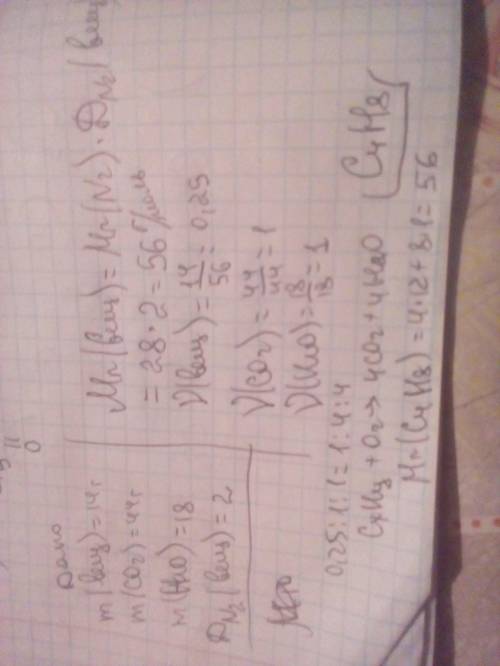 O
Дано
m(вещ)=14г
m(CO2)=44г
m(H2O)=18
DN2(вещ)=2
Mr(вещ)=Mr(N2)·DN2(вещ
=28·2=56 г/моль
ν(вещ)=14/56=0,25
ν(CO2)=44/44=1
ν(H2O)=18/18=1
0,25:1:1=1:4:4
CxHy+O2→4CO2+4H2O (C4H8)
Mr(C4H8)=4·12+8·1=56